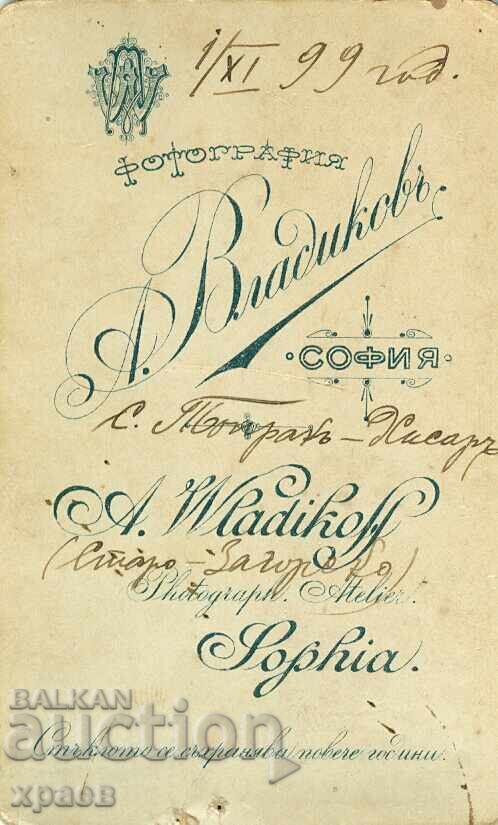 1/XI 99 год.
ФОТОГРАФИЯ
А. Владиковъ
СОФИЯ
с. Топракъ-Хисаръ
A. Wladikoff
(Старо-Загорско)
Photograph. Atelier.
Sophia.
BALKAN
auction
Стъклото се съхранява повече години.
храов